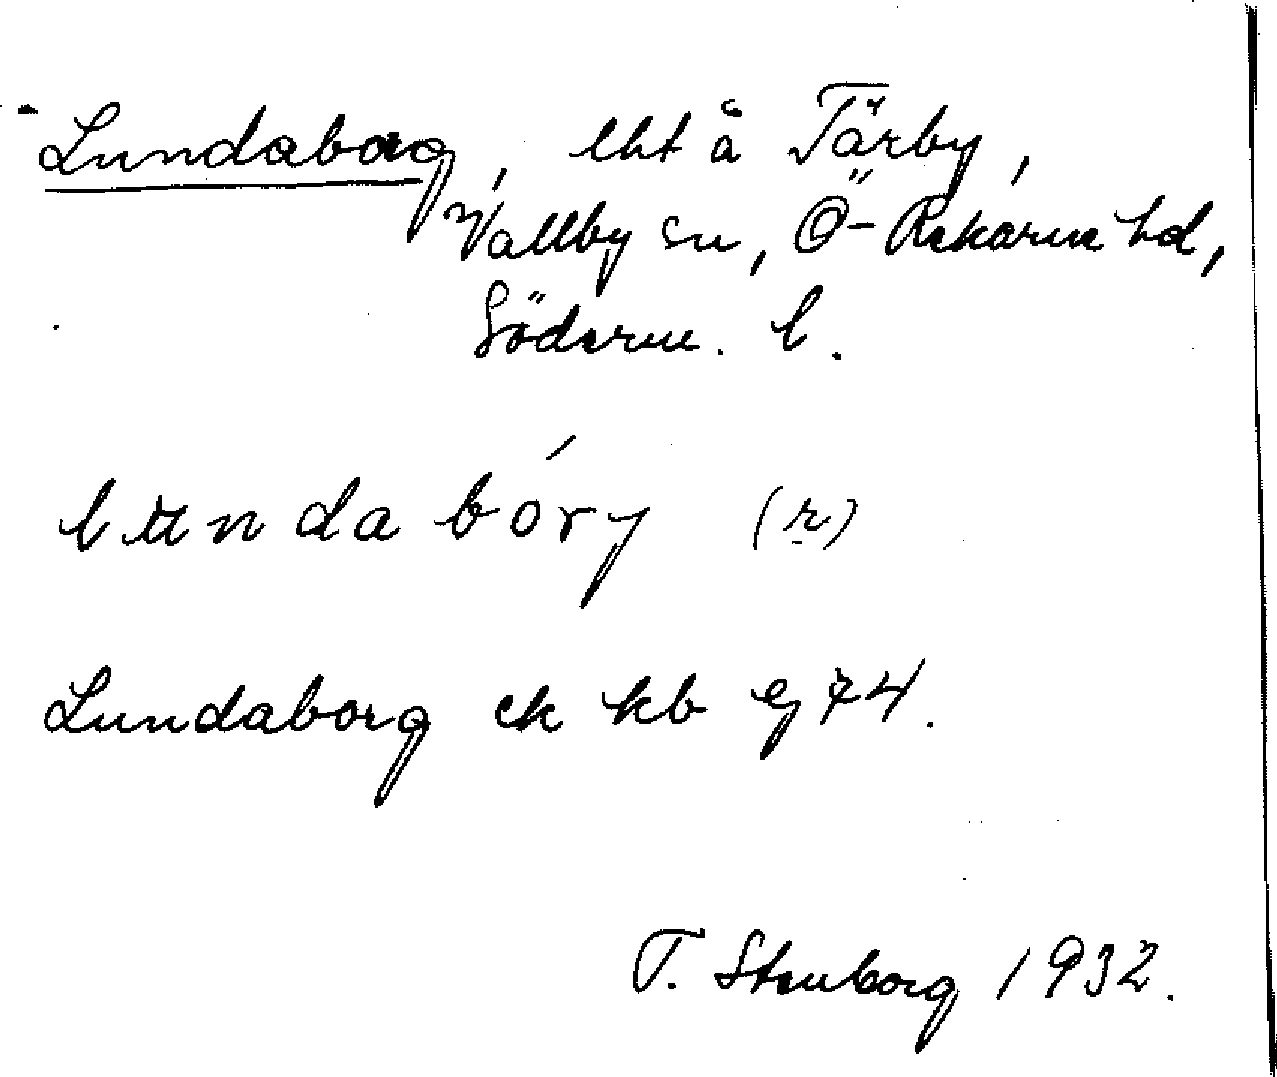 Lundaborg, lht å Tärby,
Vallby sn, Ö-Rekarne hd,
Söderm. l.
lundabórj (r)
Lundaborg ek kb ej 74.
T. Stenborg 1932.